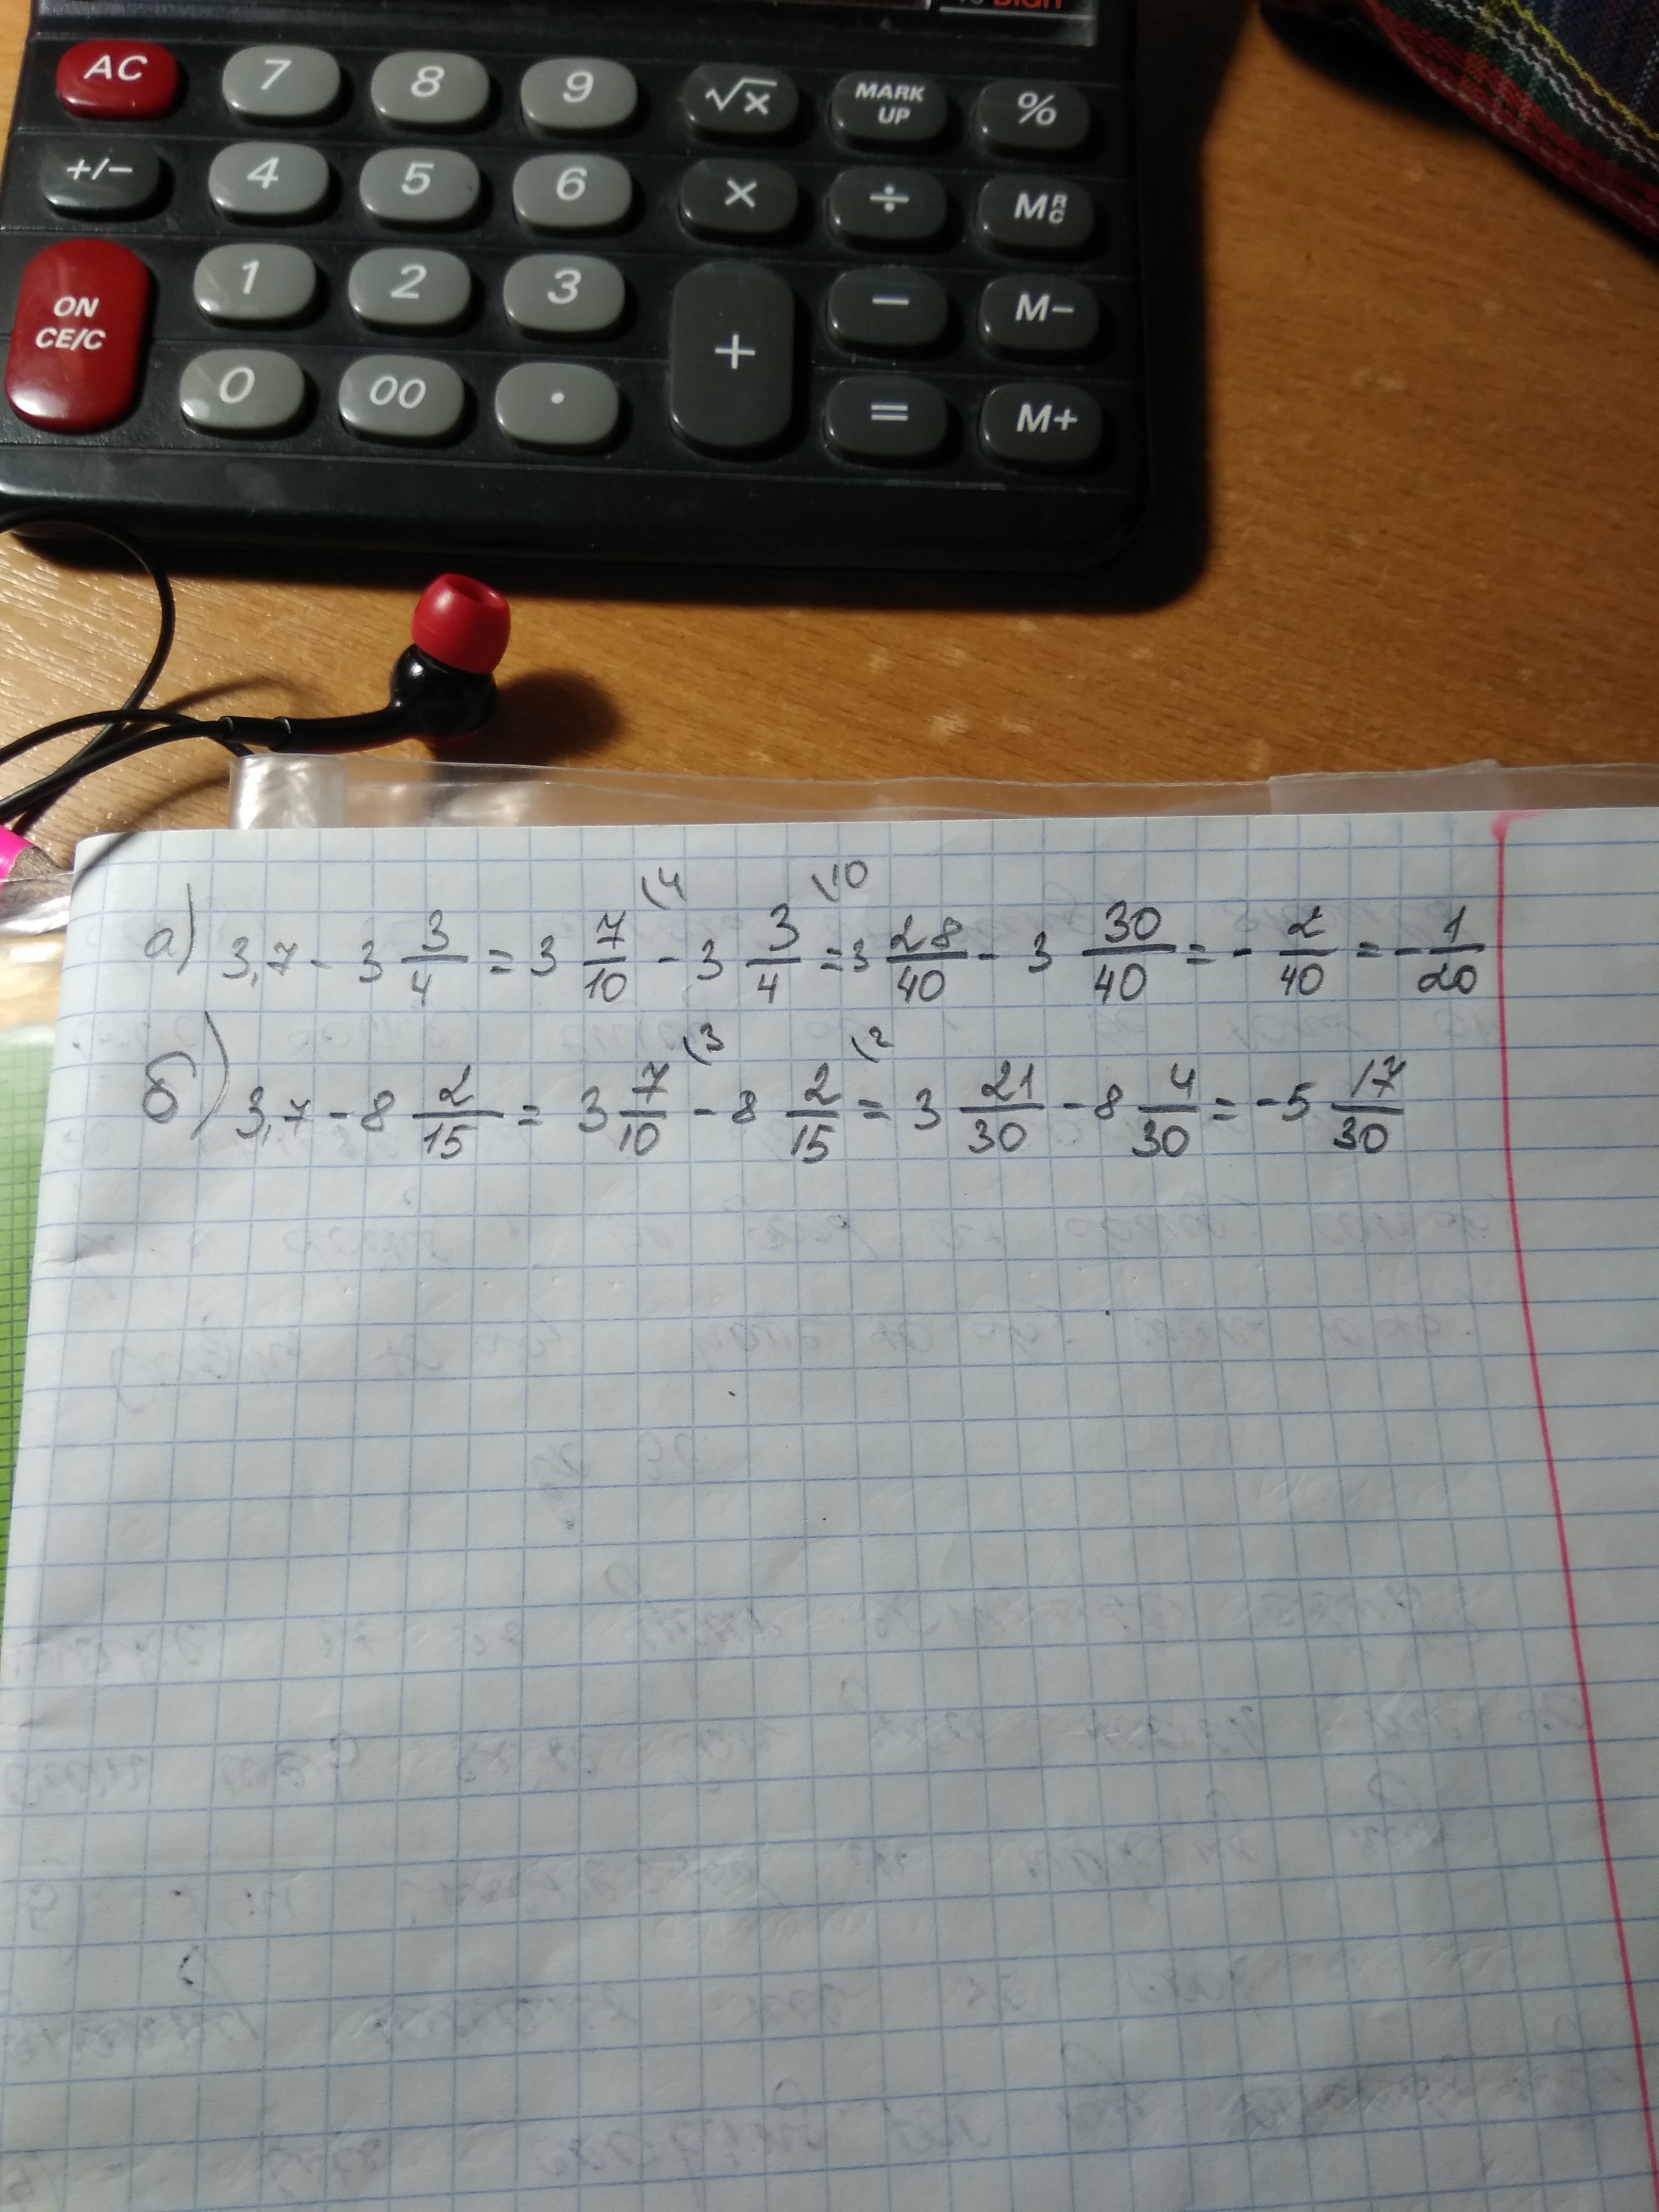 DIGIT
AC 7 8 9 √x MARK UP %
+/− 4 5 6 × ÷ MRC
ON CE/C 1 2 3 + − M−
0 00 · = M+
а) 3,7 - 3 3/4 = 3 7/10 \4 - 3 3/4 \10 = 3 28/40 - 3 30/40 = - 2/40 = - 1/20
б) 3,7 - 8 2/15 = 3 7/10 \3 - 8 2/15 \2 = 3 21/30 - 8 4/30 = -5 17/30